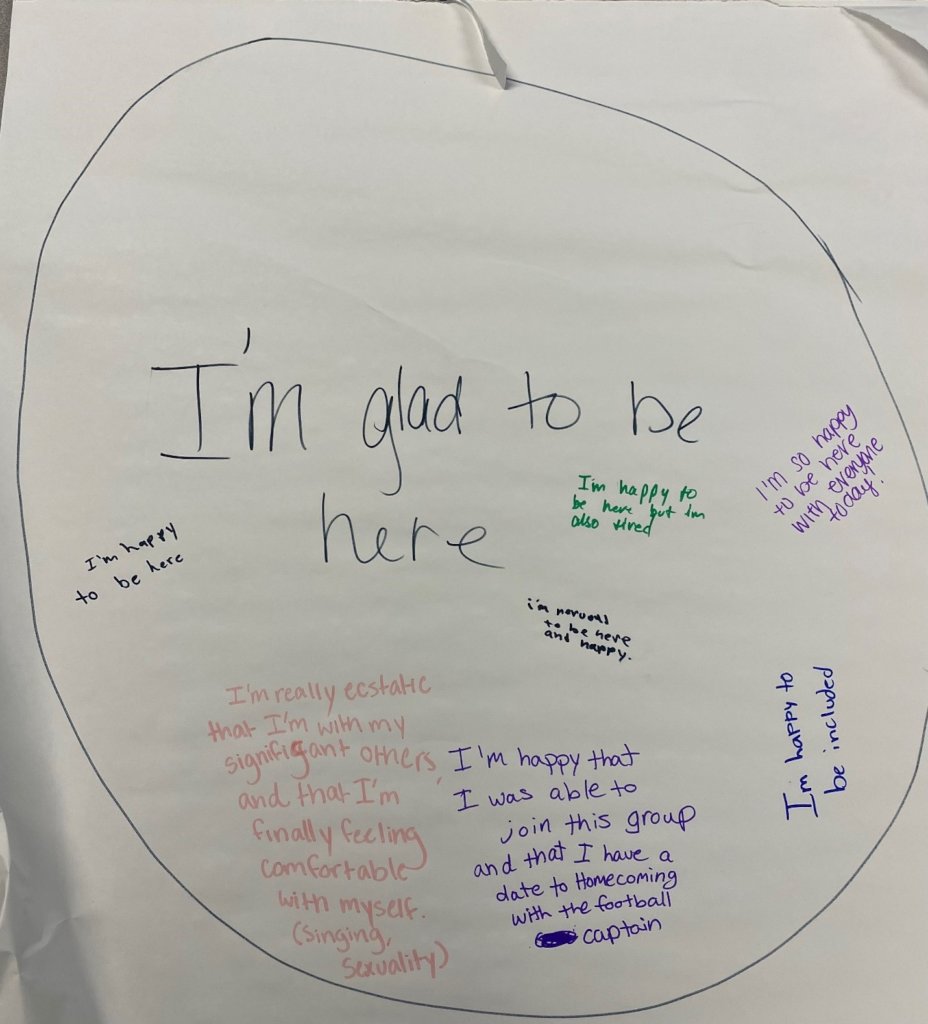 I'm glad to be
here
I'm so happy
to be here
with everyone
today!
I'm happy to
be here but im
also tired
I'm happy
to be here
i'm nervous
to be here
and happy.
I'm happy to
be included
I'm really ecstatic
that I'm with my
signifigant others,
and that I'm
finally feeling
comfortable
with myself.
(singing,
sexuality)
I'm happy that
I was able to
join this group
and that I have a
date to Homecoming
with the football
captain